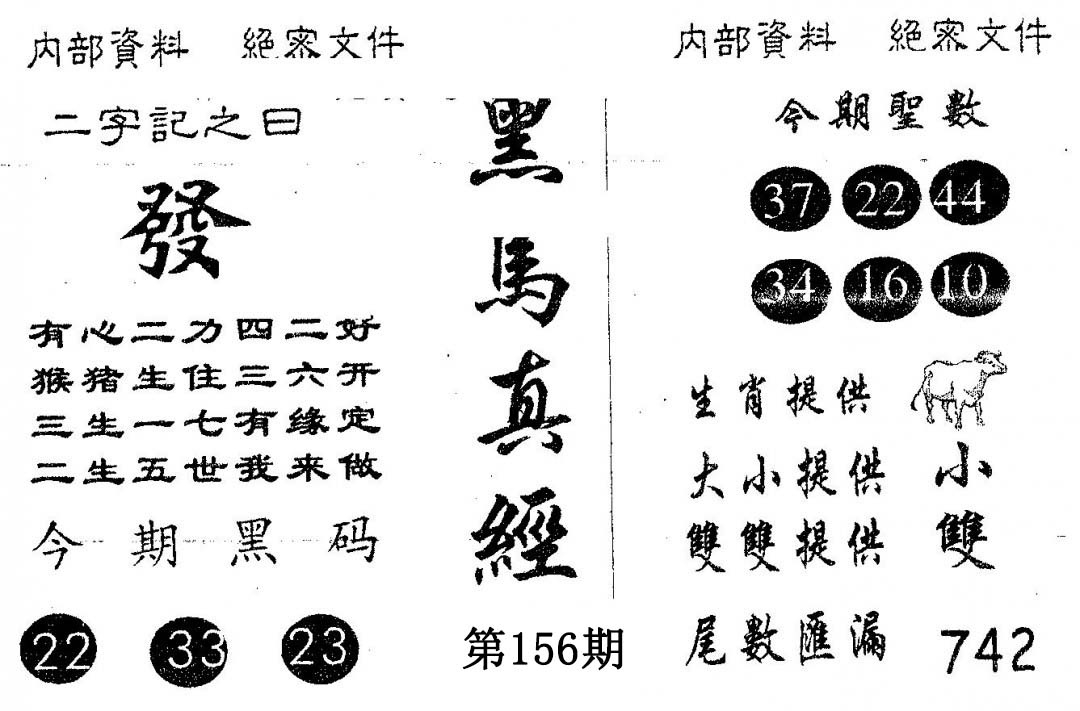 內部資料 絕密文件
二字記之曰
發
有心二力四二好
猴猪生住三六开
三生一七有缘定
二生五世我来做
今期黑码
22 33 23
黑馬真經
第156期
內部資料 絕密文件
今期聖數
37 22 44
34 16 10
生肖提供
大小提供 小
雙雙提供 雙
尾數匯漏 742